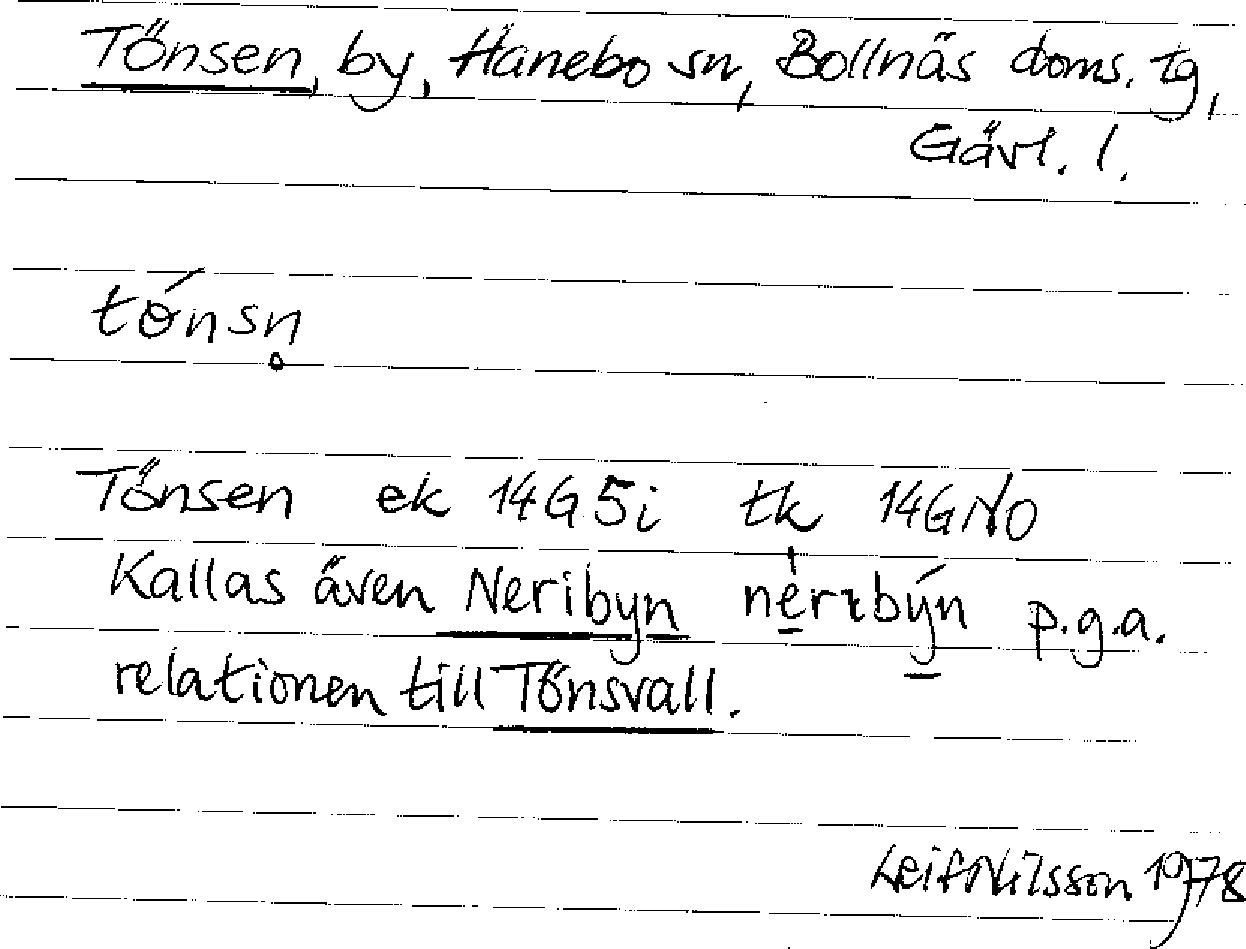 Tönsen, by, Hanebo sn, Bollnäs doms. tg,
Gävl. l.
tǿnsn̥
Tönsen ek 14G5i tk 14GNO
Kallas även Neribyn nèrɪbýn p.g.a.
relationen till Tönsvall.
Leif Nilsson 1978